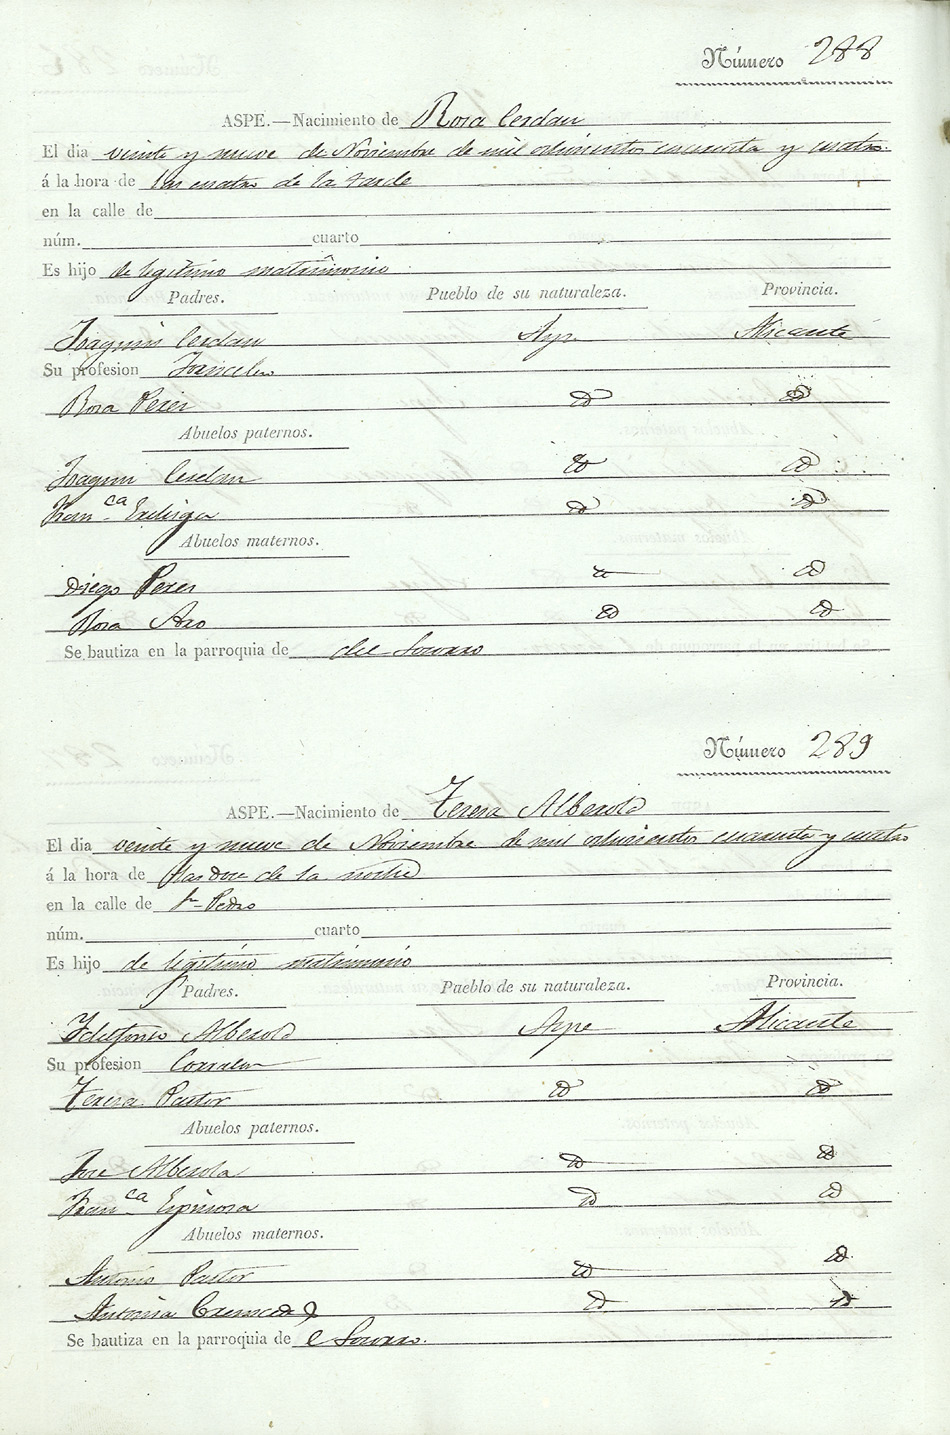 Número 288
ASPE.—Nacimiento de Rosa Cerdan
El dia veinte y nueve de Noviembre de mil ochocientos cuarenta y cuatro.
á la hora de las cuatro de la tarde
en la calle de
núm. cuarto
Es hijo de legitimo matrimonio
Padres. Pueblo de su naturaleza. Provincia.
Joaquin Cerdan Aspe Alicante
Su profesion
Rosa Perez id id
Abuelos paternos.
Joaquin Cerdan id id
Franca id id
Abuelos maternos.
Diego Perez id id
Rosa id id
Se bautiza en la parroquia de del Socorro
Número 289
ASPE.—Nacimiento de Teresa Alberola
El dia veinte y nueve de Noviembre de mil ochocientos cuarenta y cuatro
á la hora de las doce de la noche
en la calle de Sn Pedro
núm. cuarto
Es hijo de legitimo matrimonio
Padres. Pueblo de su naturaleza. Provincia.
Ildefonso Alberola Aspe Alicante
Su profesion
Teresa Pastor id id
Abuelos paternos.
Jose Alberola id id
Franca Espinosa id id
Abuelos maternos.
Antonio Pastor id id
Antonia id id
Se bautiza en la parroquia de el Socorro.